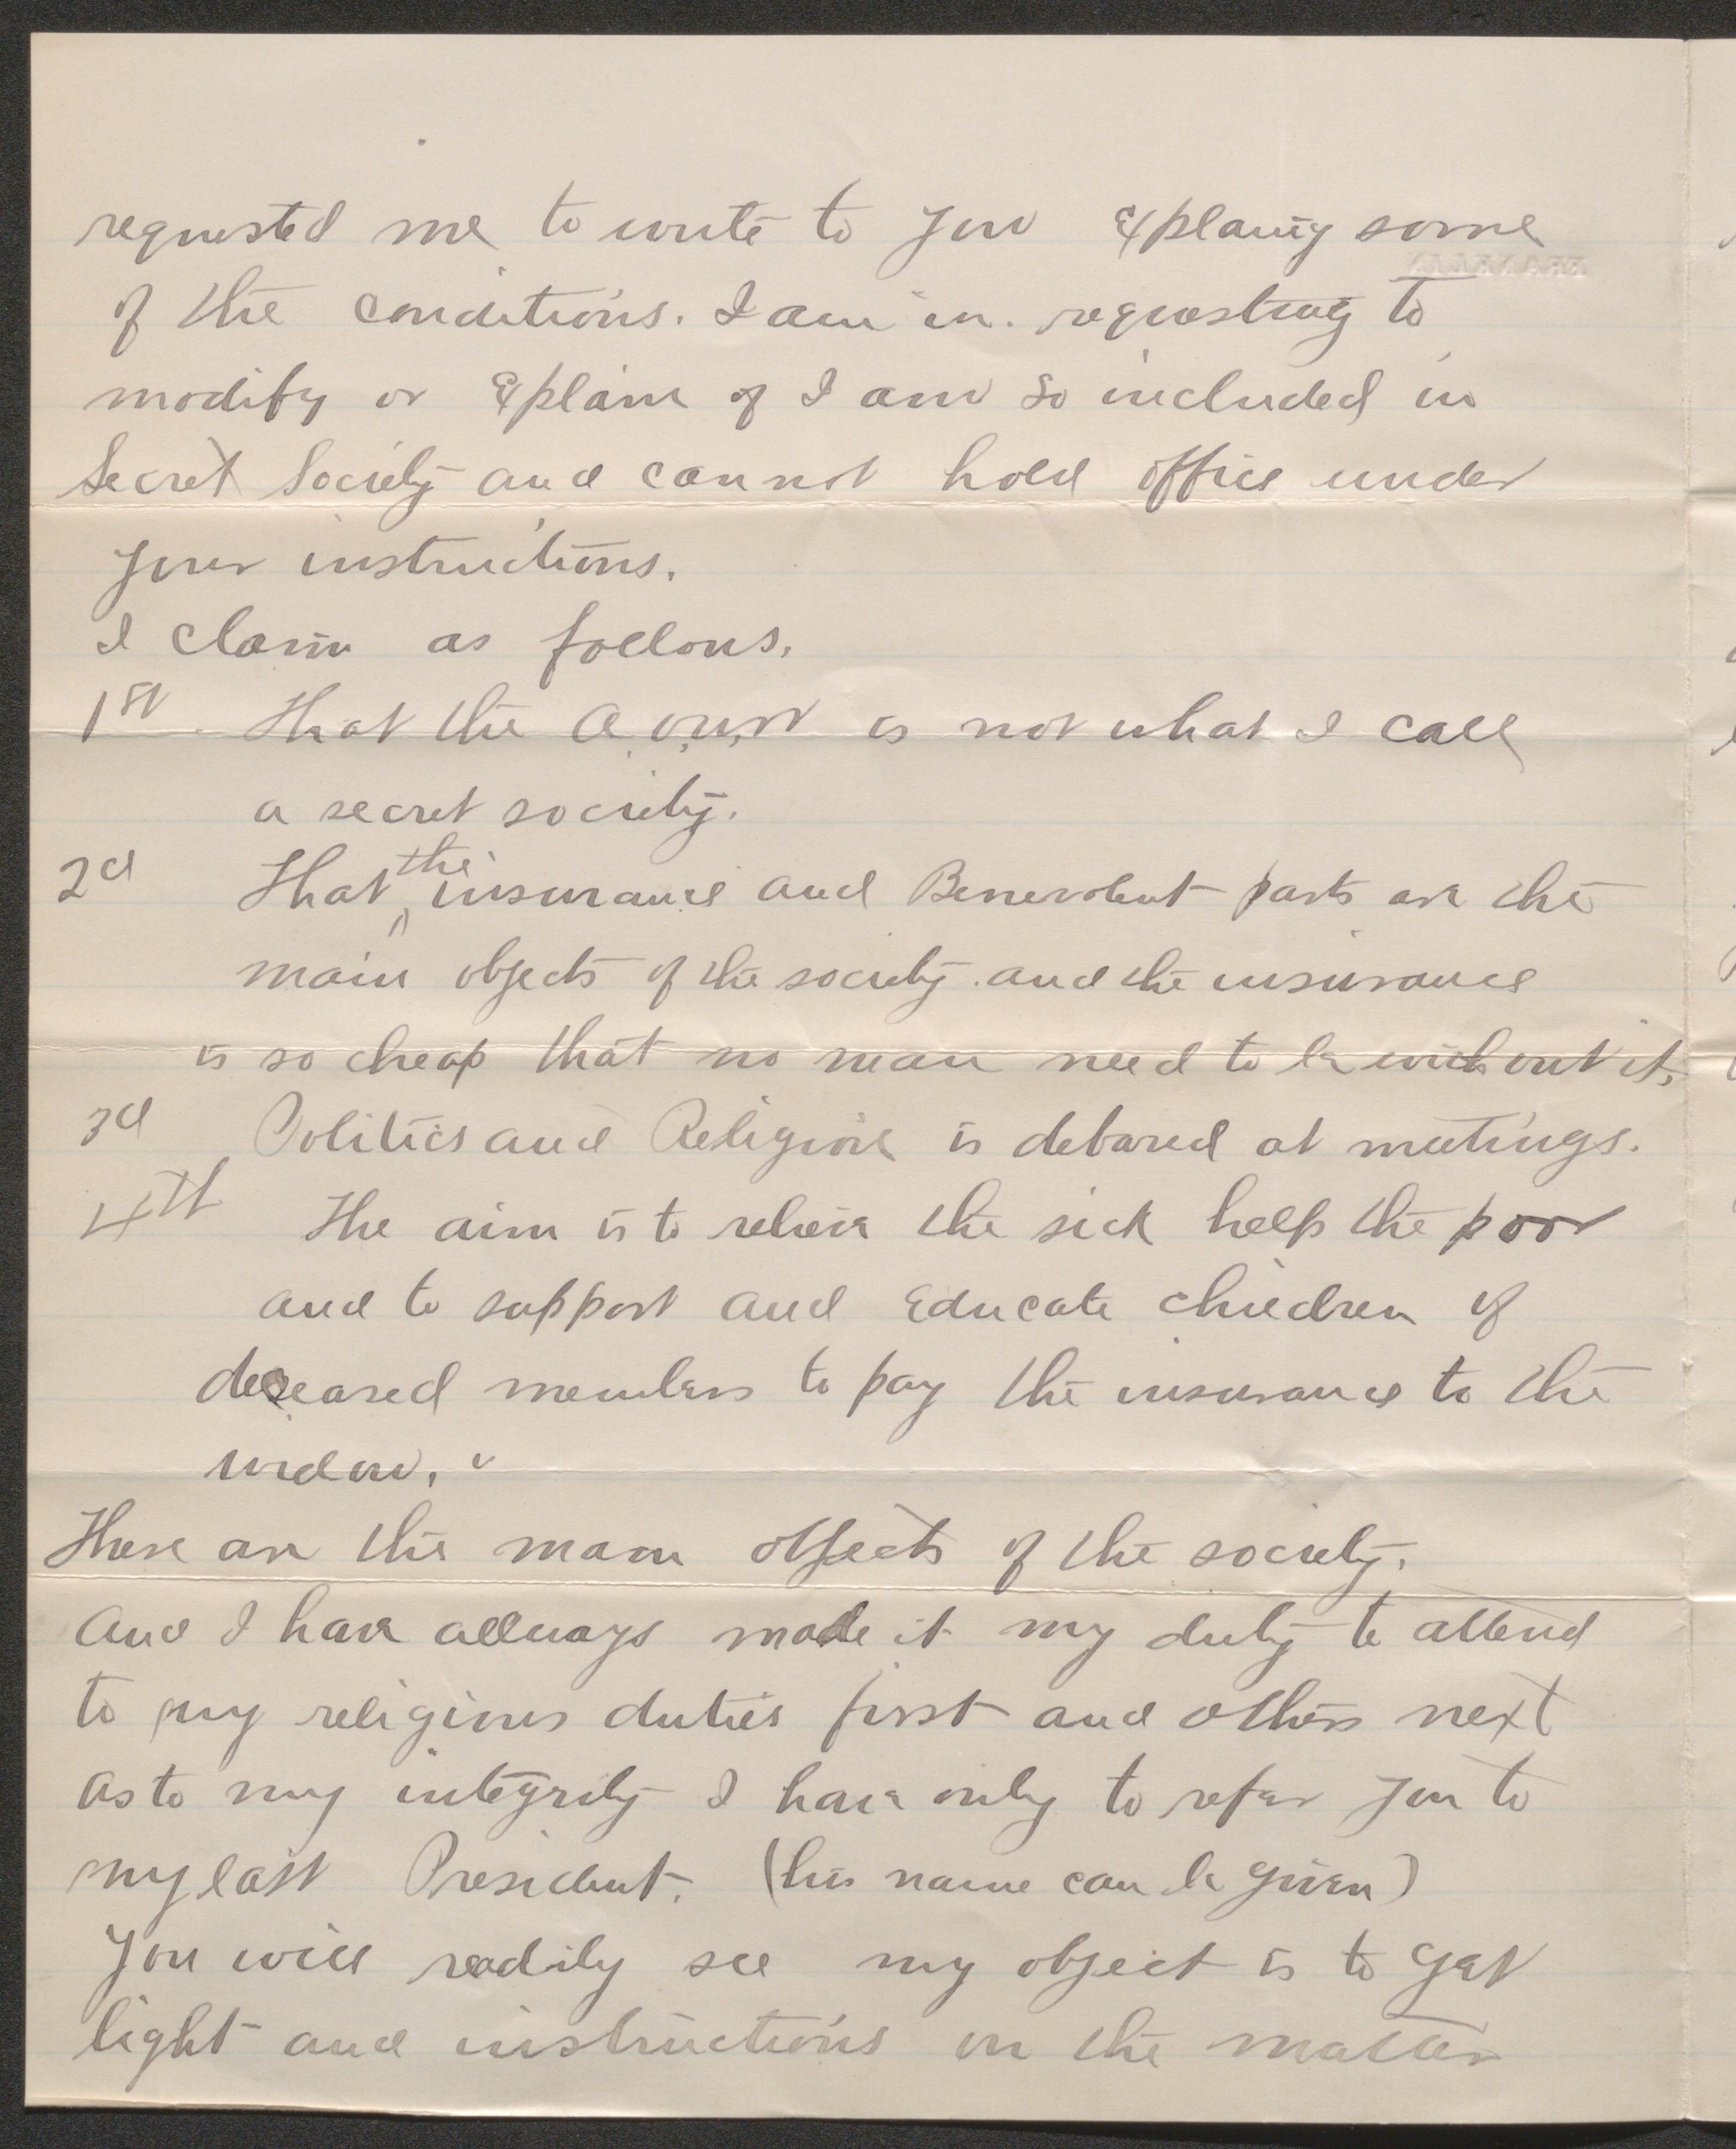 requested me to write to you explaing some
of the conditions. I am in. requesting to
modify or explain if I am so included in
Secret Society and cannot hold office under
your instructions.
I claim as follows.
1st That the A.O.U.W is not what I call
a secret society.
2d That the insurance and Benevolent parts are the
main objects of the society. and the insurance
is so cheap that no man need to be without it,
3d Politics and Religion is debared at meetings.
4th The aim is to releive the sick help the poor
and to support and educate children of
deseased members to pay the insurance to the
widow.
These are the main objects of the society.
And I have allways made it my duty to attend
to my religious duties first and others next
as to my integrity I have only to refer you to
my last President. (his name can be given)
You will readily see my object is to get
light and instructions on the matter